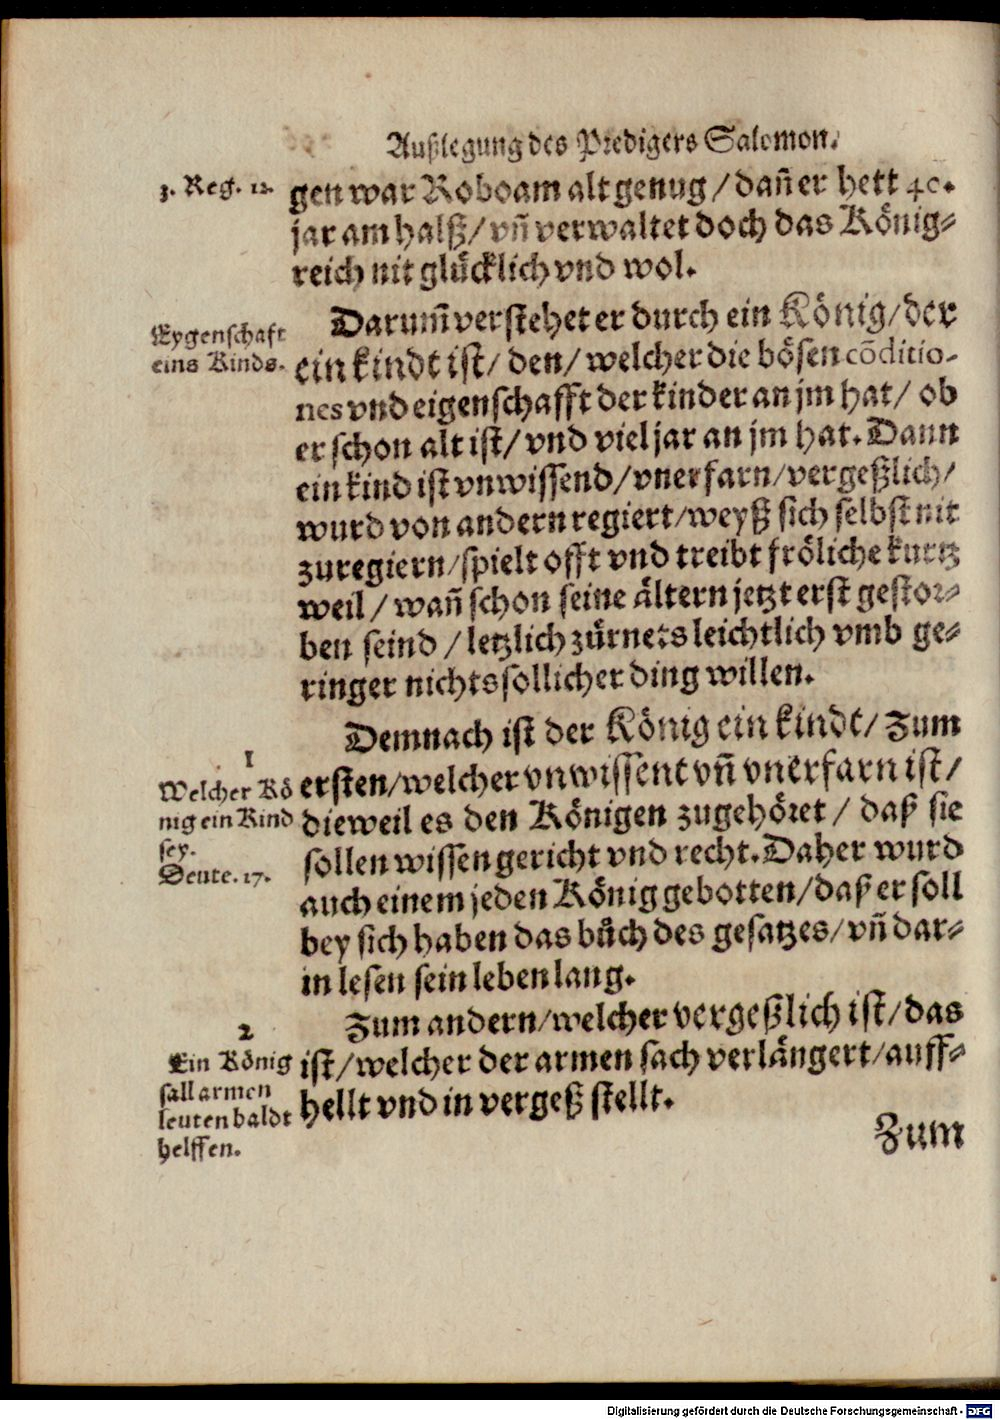 Außlegung des Predigers Salomon.
3. Reg. 12.
gen war Roboam alt genug / dañ er hett 40.
jar am halß / vñ verwaltet doch das König-
reich nit glücklich vnd wol.
Eygenschaft
eins Kinds.
Darum̃ verstehet er durch ein König / der
ein kindt ist / den / welcher die bösen cōditio-
nes vnd eigenschafft der kinder an jm hat / ob
er schon alt ist / vnd viel jar an jm hat. Dann
ein kind ist vnwissend / vnerfarn / vergeßlich /
wurd von andern regiert / weyß sich selbst nit
zuregiern / spielt offt vnd treibt fröliche kurtz
weil / wañ schon seine ältern jetzt erst gestor-
ben seind / letzlich zürnets leichtlich vmb ge-
ringer nichts sollicher ding willen.
1
Welcher Kö
nig ein Kind
sey.
Deute. 17.
Demnach ist der König ein kindt / Zum
ersten / welcher vnwissent vñ vnerfarn ist /
dieweil es den Königen zugehöret / daß sie
sollen wissen gericht vnd recht. Daher wurd
auch einem jeden König gebotten / daß er soll
bey sich haben das bůch des gesatzes / vñ dar-
in lesen sein leben lang.
2
Ein König
sall armen
leuten baldt
helffen.
Zum andern / welcher vergeßlich ist / das
ist / welcher der armen sach verlängert / auff-
hellt vnd in vergeß stellt.
Zum
Digitalisierung gefördert durch die Deutsche Forschungsgemeinschaft - DFG